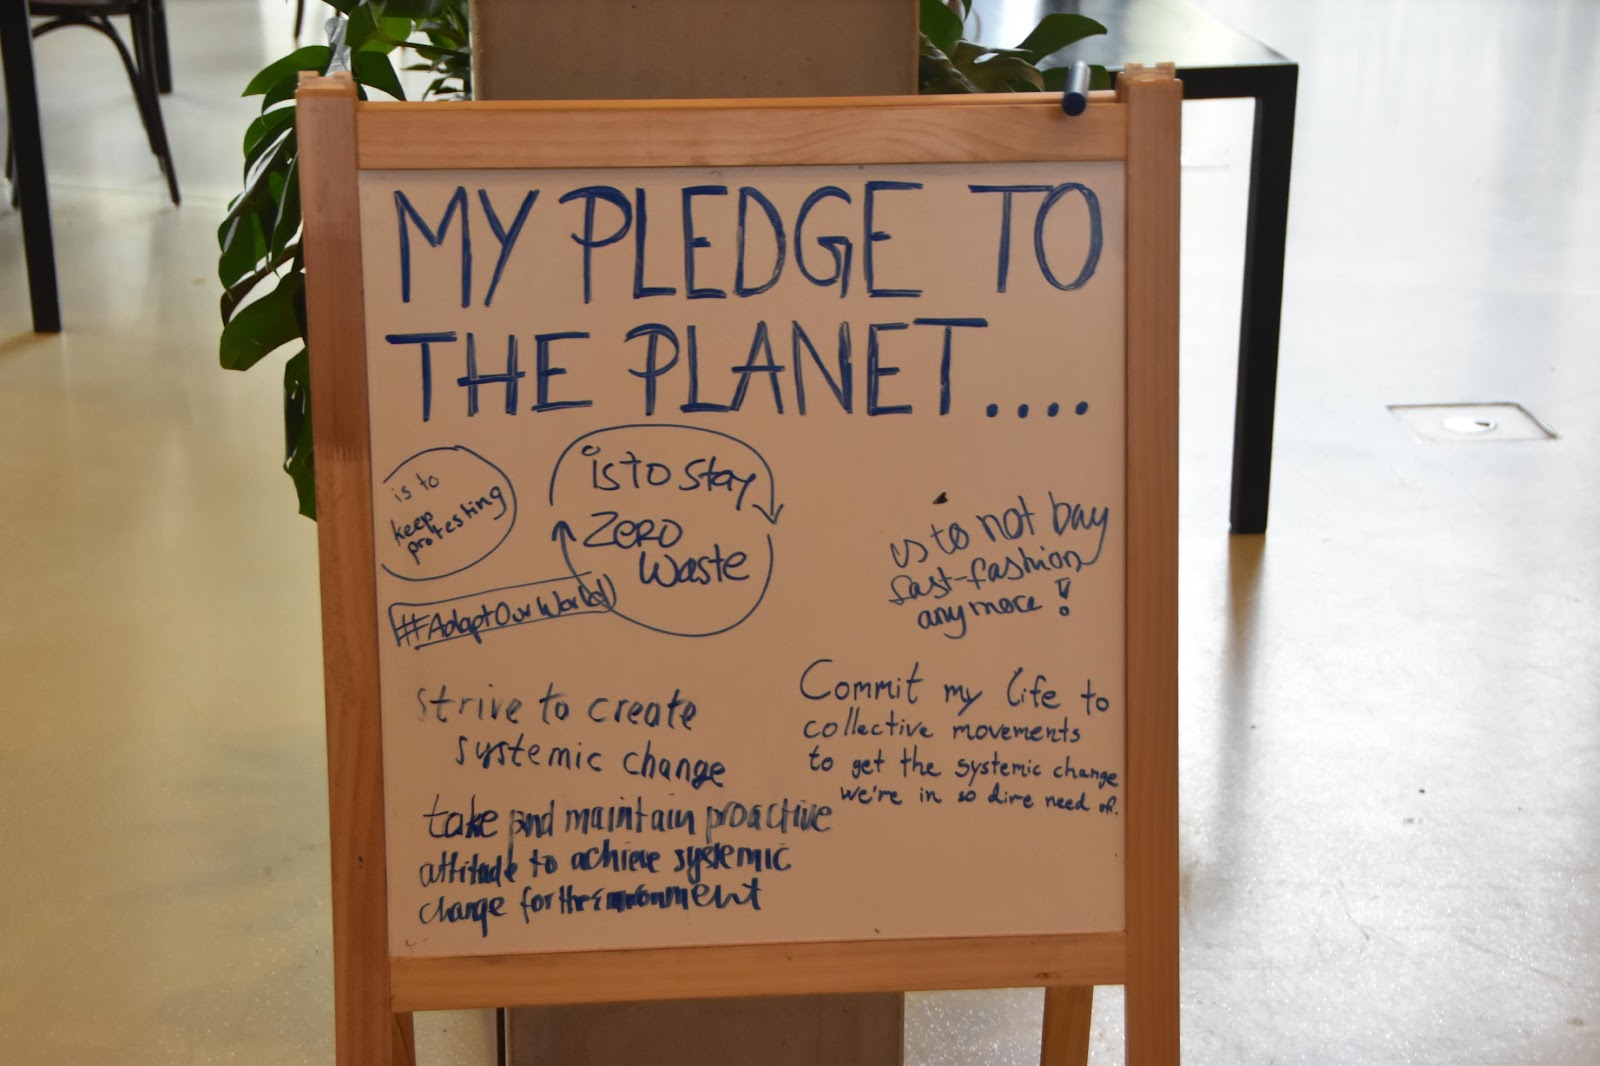 MY PLEDGE TO
THE PLANET....
is to
keep
protesting
is to stay
Zero
Waste
#AdaptOurWorld
is to not bay
fast-fashion
anymore!
strive to create
systemic change
Commit my life to
collective movements
to get the systemic change
we're in so dire need of.
take and maintain proactive
attitude to achieve systemic
change for the environment